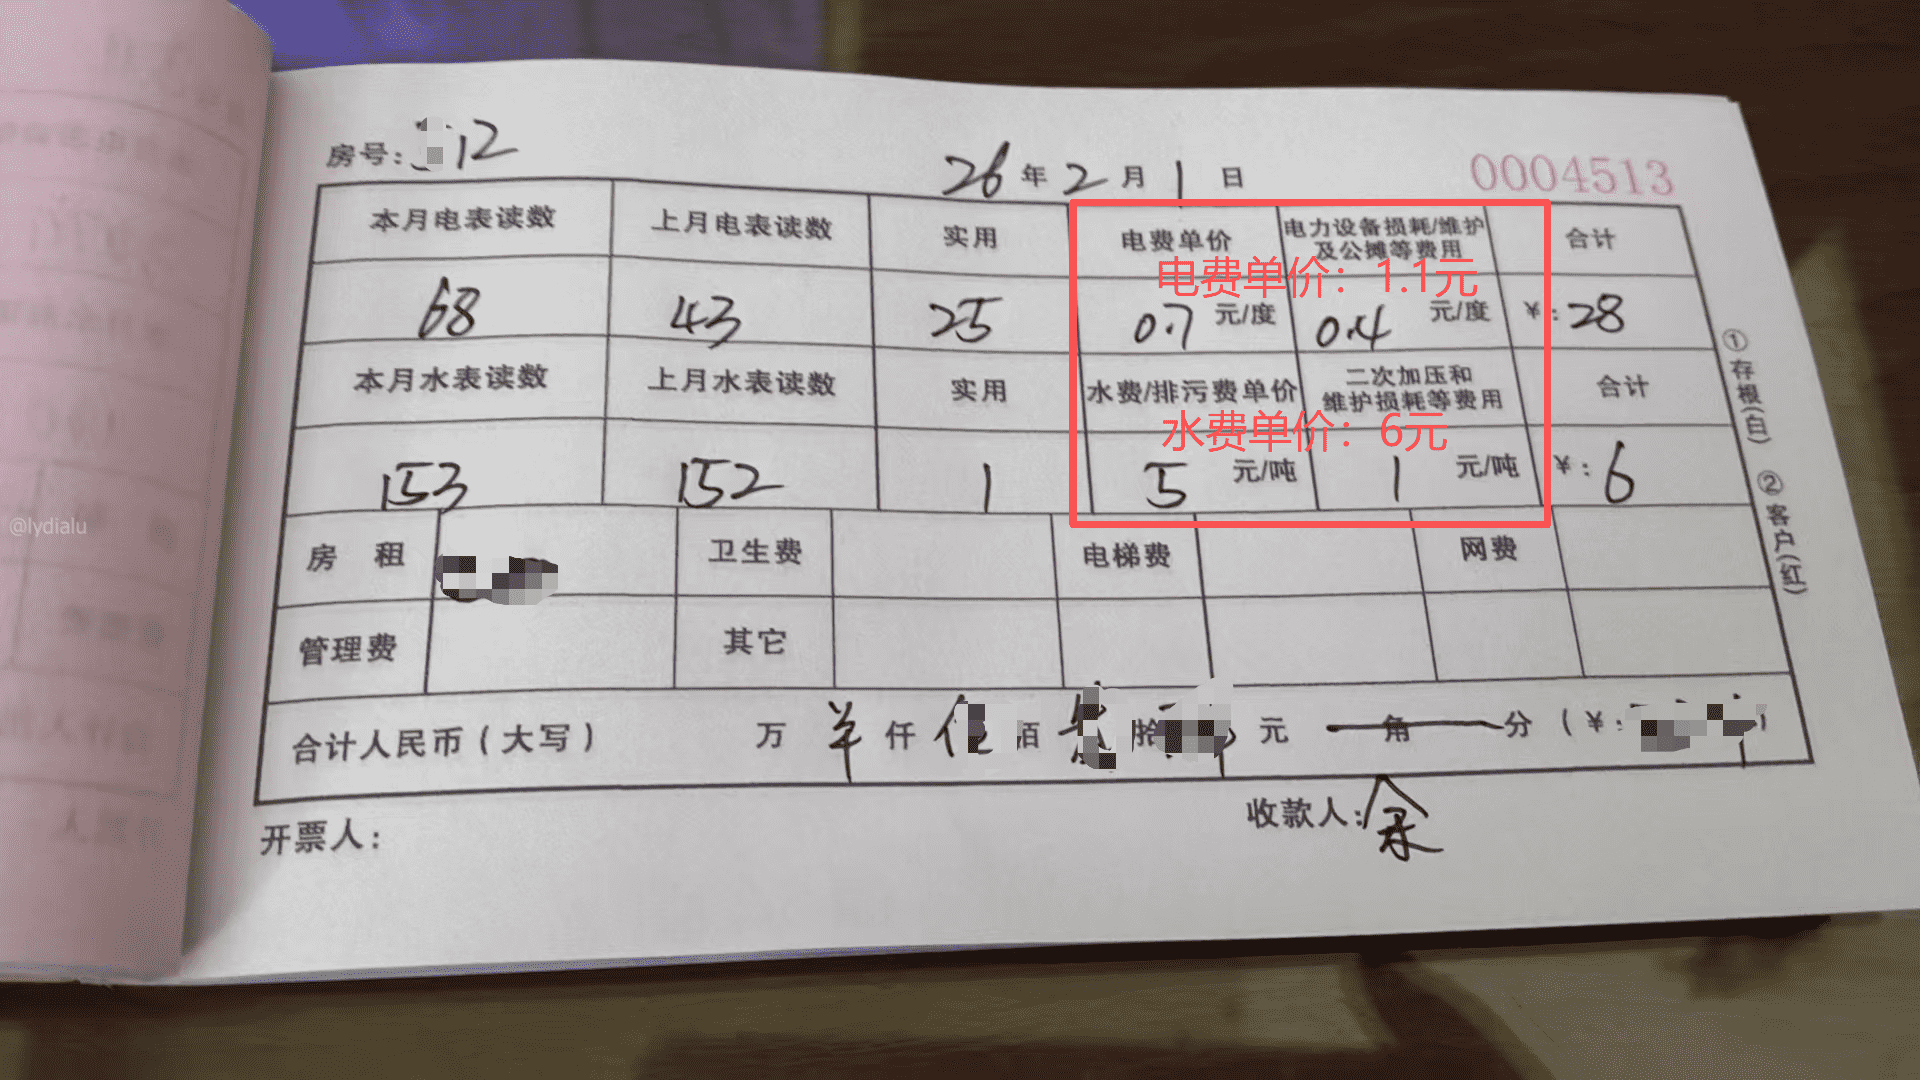 房号: 12
26年2月1日
0004513
本月电表读数 上月电表读数 实用 电费单价 电力设备损耗/维护及公摊等费用 合计
电费单价：1.1元
68 43 25 0.7元/度 0.4元/度 ¥:28
本月水表读数 上月水表读数 实用 水费/排污费单价 二次加压和维护损耗等费用 合计
水费单价：6元
153 152 1 5元/吨 1元/吨 ¥:6
房 租 卫生费 电梯费 网费
管理费 其它
合计人民币(大写) 万 仟 佰 拾 元 角 分 (¥: )
开票人:
收款人:余
①存根(白) ②客户(红)
@lydialu